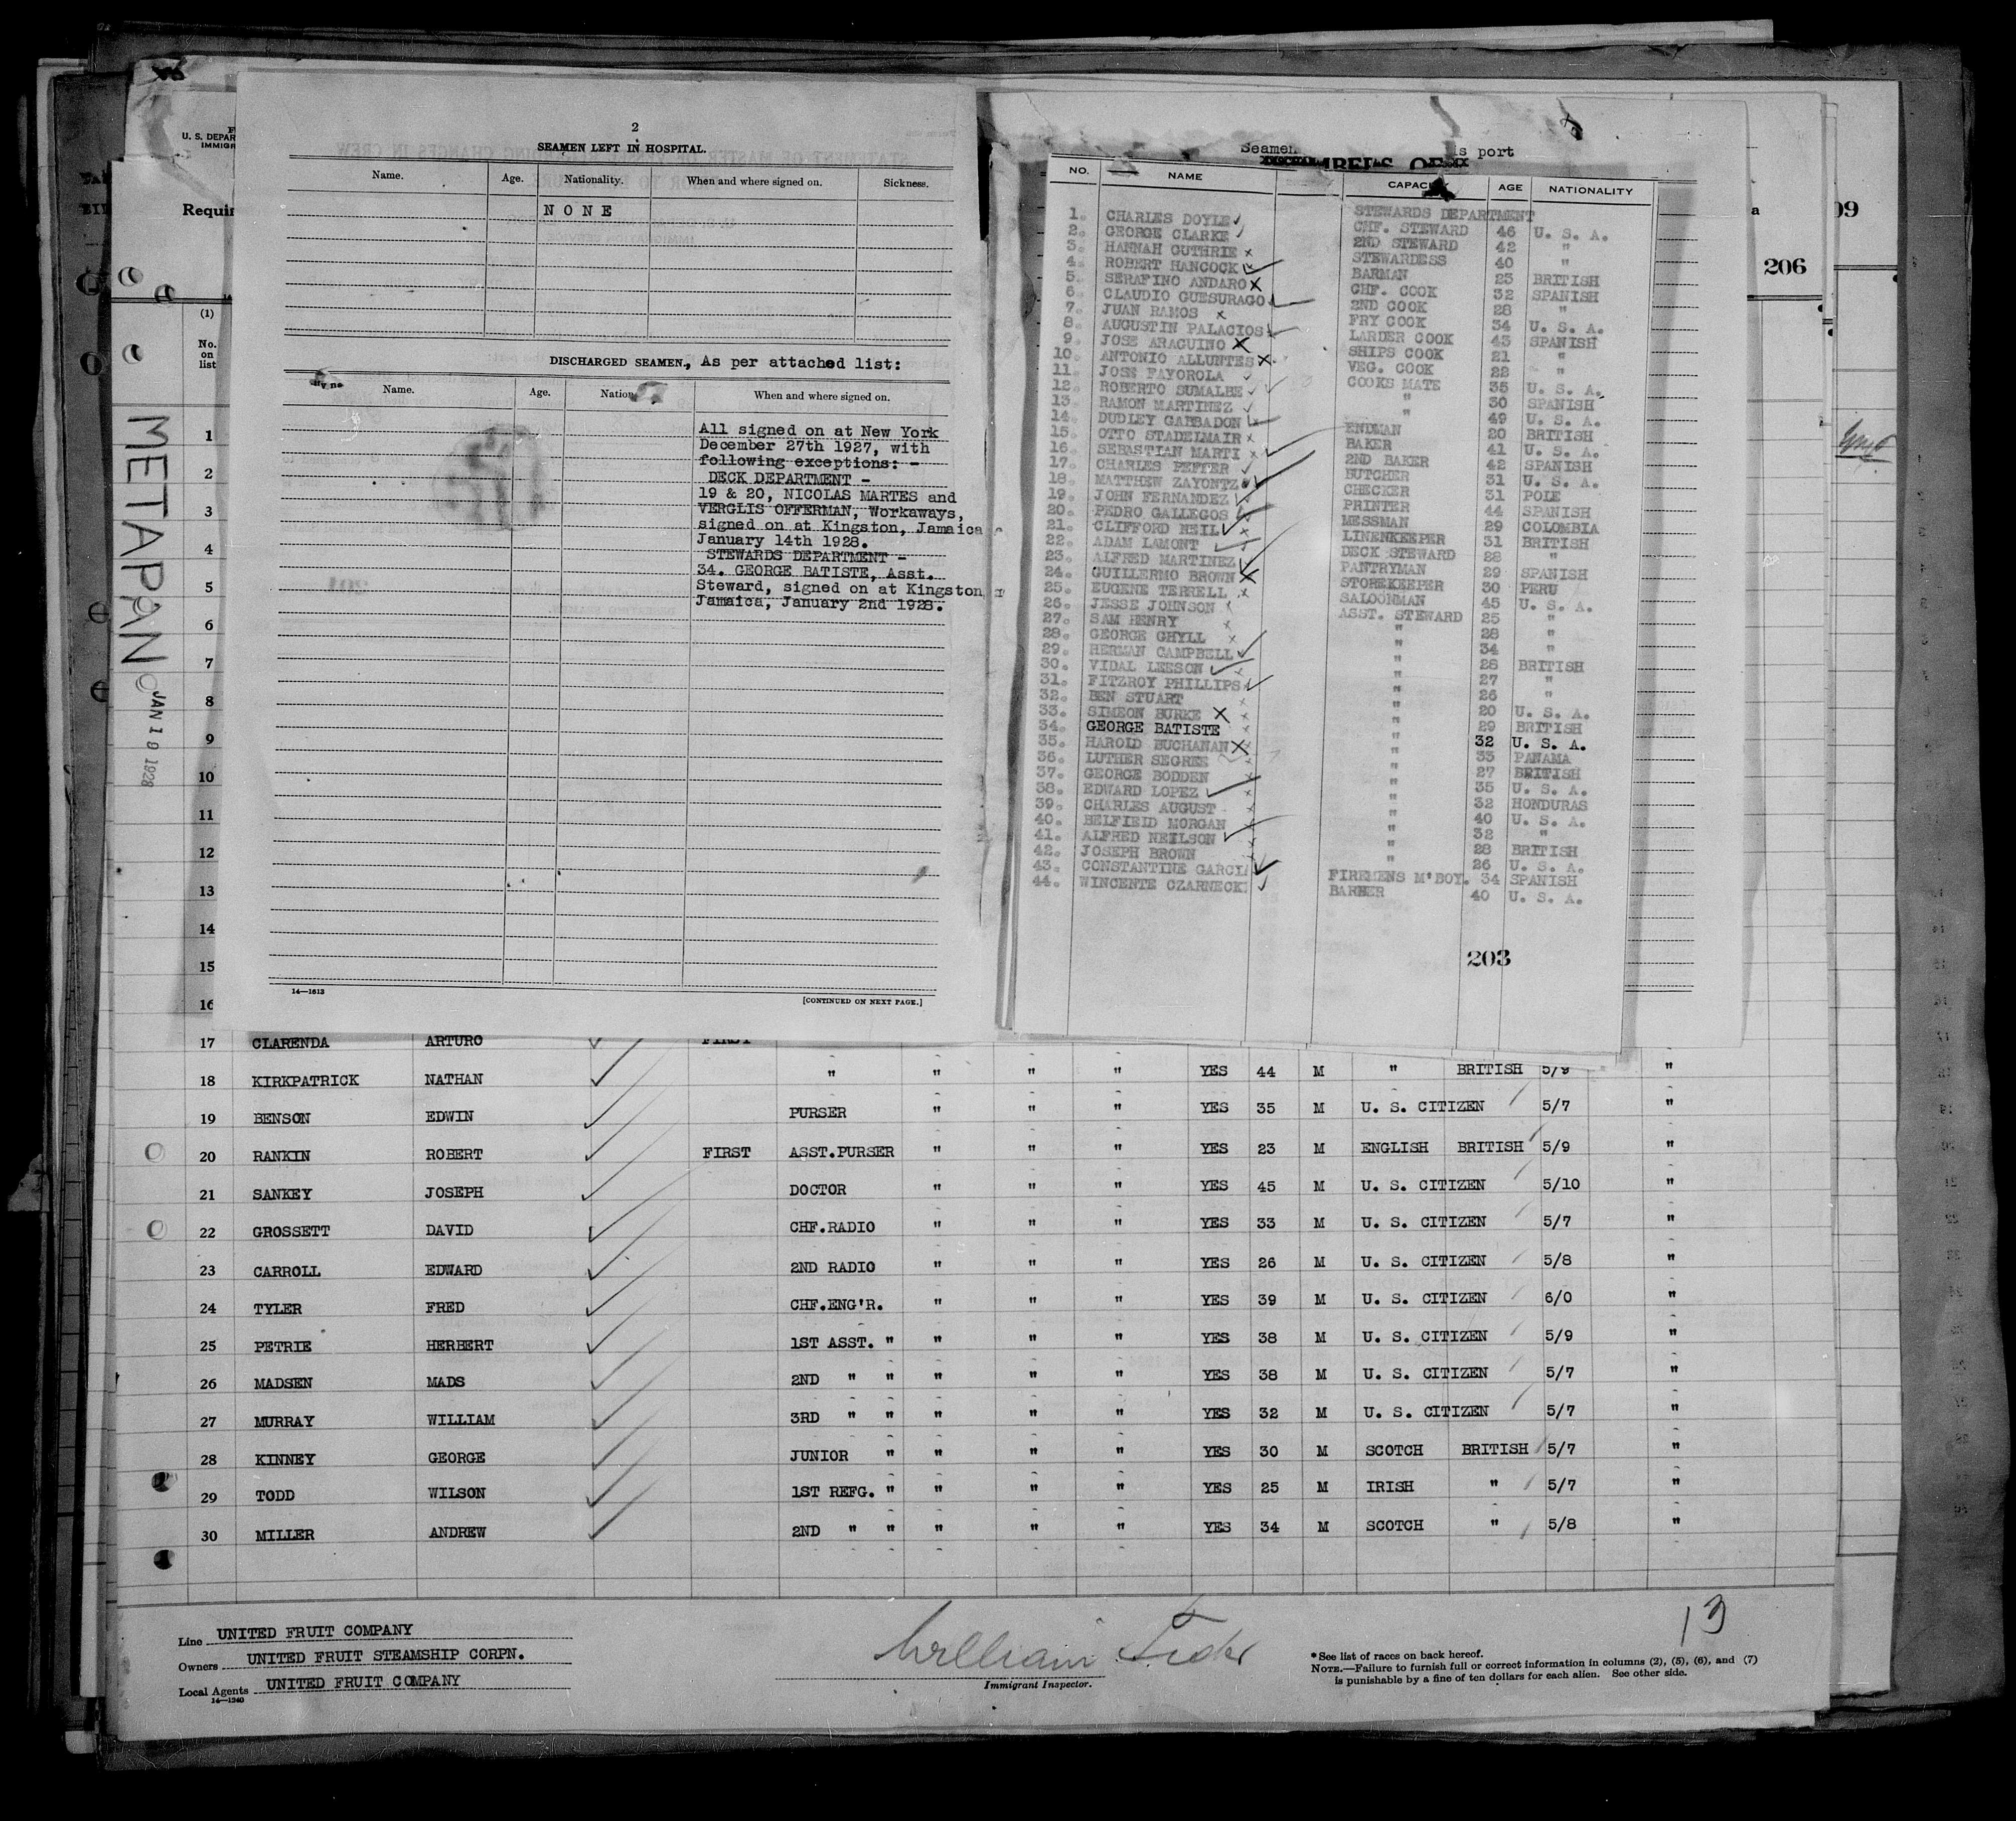 U. S. DEPAR
IMMIGR
Requir
(1)
No.
on
list
METAPAN
JAN 18 1928
2
SEAMEN LEFT IN HOSPITAL.
Name. Age. Nationality. When and where signed on. Sickness.
NONE
DISCHARGED SEAMEN, As per attached list:
Name. Age. Nation When and where signed on.
All signed on at New York
December 27th 1927, with
following exceptions: -
DECK DEPARTMENT -
19 & 20, NICOLAS MARTES and
VERGLIS OFFERMAN, Workaways,
signed on at Kingston, Jamaica
January 14th 1928.
STEWARDS DEPARTMENT -
34. GEORGE BATISTE, Asst.
Steward, signed on at Kingston,
Jamaica, January 2nd 1928.
201
14—1613
[CONTINUED ON NEXT PAGE.]
Seamen is port
MBERS OF
NO. NAME CAPACITY AGE NATIONALITY
STEWARDS DEPARTMENT
1. CHARLES DOYLE CHF. STEWARD 46 U. S. A.
2. GEORGE CLARKE 2ND STEWARD 42 "
3. HANNAH GUTHRIE STEWARDESS 40 "
4. ROBERT HANCOCK BARMAN 25 BRITISH
5. SERAFINO ANDARO CHF. COOK 32 SPANISH
6. CLAUDIO GUESURAGO 2ND COOK 28 "
7. JUAN RAMOS FRY COOK 34 U. S. A.
8. AUGUSTIN PALACIOS LARDER COOK 43 SPANISH
9. JOSE ARAGUINO SHIPS COOK 21 "
10. ANTONIO ALLUNTES VEG. COOK 22 "
11. JOSE FAYOROLA COOKS MATE 35 U. S. A.
12. ROBERTO SUMALBE " 30 SPANISH
13. RAMON MARTINEZ " 49 U. S. A.
14. DUDLEY GABBADON ENDMAN 20 BRITISH
15. OTTO STADELMAIR BAKER 41 U. S. A.
16. SEBASTIAN MARTI 2ND BAKER 42 SPANISH
17. CHARLES PEFFER BUTCHER 31 U. S. A.
18. MATTHEW ZAYONTZ CHECKER 31 POLE
19. JOHN FERNANDEZ PRINTER 44 SPANISH
20. PEDRO GALLEGOS MESSMAN 29 COLOMBIA
21. CLIFFORD NEIL LINENKEEPER 31 BRITISH
22. ADAM LAMONT DECK STEWARD 28 "
23. ALFRED MARTINEZ PANTRYMAN 29 SPANISH
24. GUILLERMO BROWN STOREKEEPER 30 PERU
25. EUGENE TERRELL SALOONMAN 45 U. S. A.
26. JESSE JOHNSON ASST. STEWARD 25 "
27. SAM HENRY " 28 "
28. GEORGE GHYLL " 34 "
29. HERMAN CAMPBELL " 28 BRITISH
30. VIDAL LEESON " 27 "
31. FITZROY PHILLIPS " 26 "
32. BEN STUART " 20 U. S. A.
33. SIMEON BURKE " 29 BRITISH
34. GEORGE BATISTE " 32 U. S. A.
35. HAROLD BUCHANAN " 33 PANAMA
36. LUTHER SEGREE " 27 BRITISH
37. GEORGE BODDEN " 35 U. S. A.
38. EDWARD LOPEZ " 32 HONDURAS
39. CHARLES AUGUST " 40 U. S. A.
40. BELFIELD MORGAN " 32 "
41. ALFRED NEILSON " 28 BRITISH
42. JOSEPH BROWN " 26 U. S. A.
43. CONSTANTINE GARCI FIREMENS M'BOY. 34 SPANISH
44. WINCENTE CZARNECK BARBER 40 U. S. A.
203
206
09
1
2
3
4
5
6
7
8
9
10
11
12
13
14
15
16
17 CLARENDA ARTURO FIRST
18 KIRKPATRICK NATHAN " " " " YES 44 M " BRITISH 5/9 "
19 BENSON EDWIN PURSER " " " YES 35 M U. S. CITIZEN 5/7 "
20 RANKIN ROBERT FIRST ASST.PURSER " " " YES 23 M ENGLISH BRITISH 5/9 "
21 SANKEY JOSEPH DOCTOR " " " YES 45 M U. S. CITIZEN 5/10 "
22 GROSSETT DAVID CHF.RADIO " " " YES 33 M U. S. CITIZEN 5/7 "
23 CARROLL EDWARD 2ND RADIO " " " YES 26 M U. S. CITIZEN 5/8 "
24 TYLER FRED CHF.ENG'R. " " " YES 39 M U. S. CITIZEN 6/0 "
25 PETRIE HERBERT 1ST ASST. " " " " YES 38 M U. S. CITIZEN 5/9 "
26 MADSEN MADS 2ND " " " " " YES 38 M U. S. CITIZEN 5/7 "
27 MURRAY WILLIAM 3RD " " " " " YES 32 M U. S. CITIZEN 5/7 "
28 KINNEY GEORGE JUNIOR " " " " YES 30 M SCOTCH BRITISH 5/7 "
29 TODD WILSON 1ST REFG. " " " " YES 25 M IRISH " 5/7 "
30 MILLER ANDREW 2ND " " " " " YES 34 M SCOTCH " 5/8 "
Line UNITED FRUIT COMPANY
Owners UNITED FRUIT STEAMSHIP CORPN.
Local Agents UNITED FRUIT COMPANY
14—1240
William
Immigrant Inspector.
13
*See list of races on back hereof.
NOTE.—Failure to furnish full or correct information in columns (2), (5), (6), and (7)
is punishable by a fine of ten dollars for each alien. See other side.